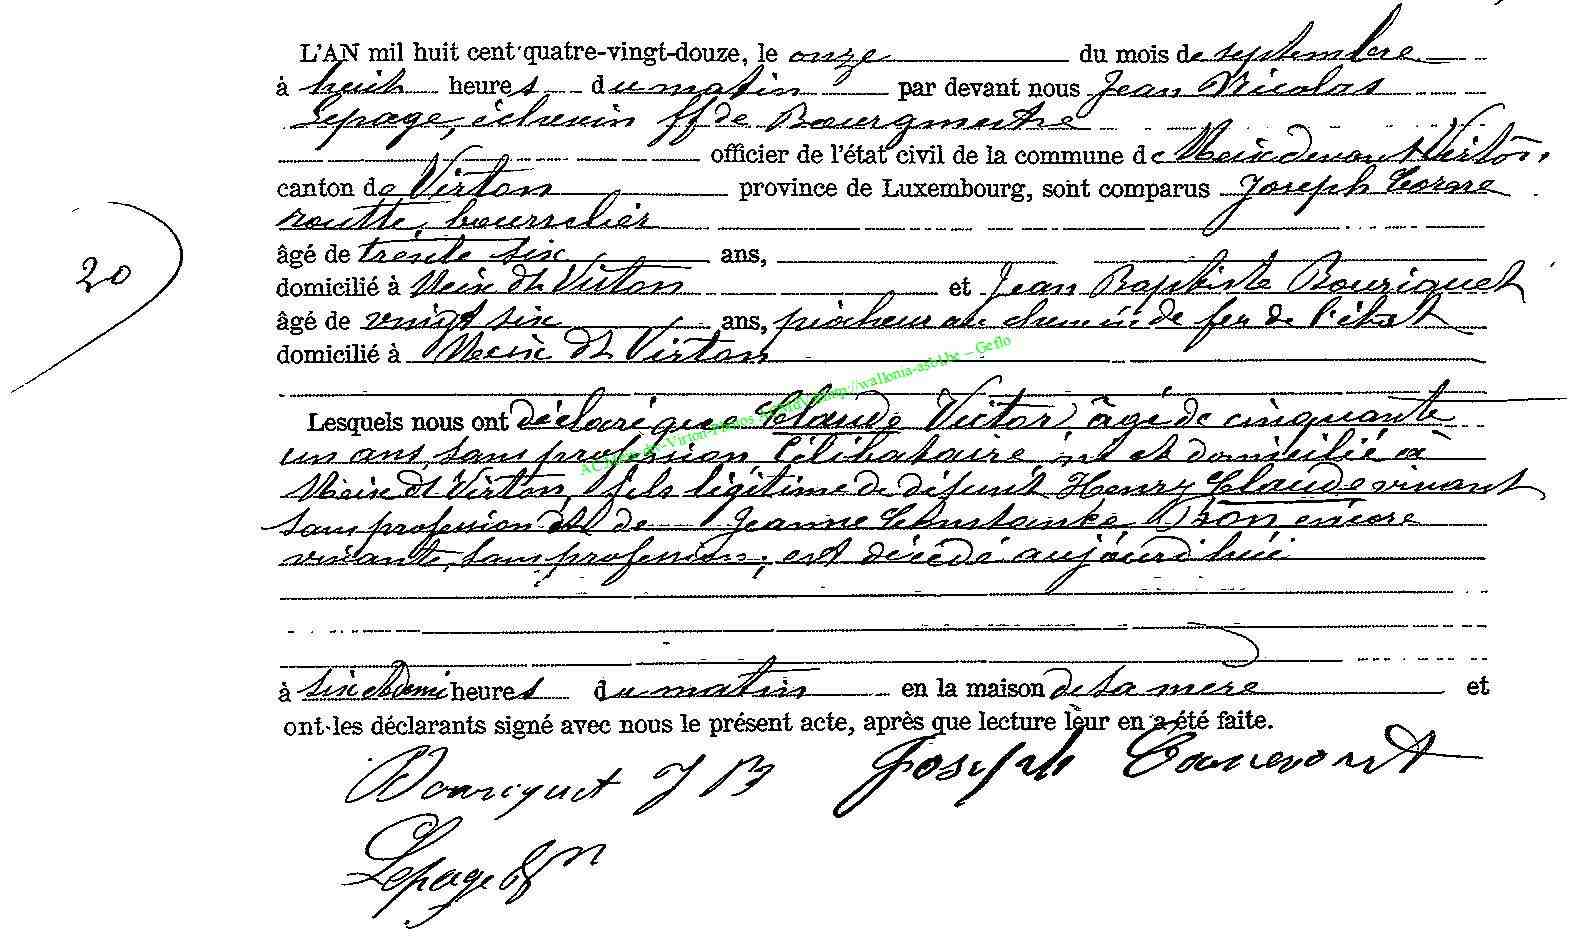 L'AN mil huit cent quatre-vingt-douze, le onze du mois de septembre
à huit heures du matin par devant nous Jean Nicolas
Lepage, échevin ff de Bourgmestre
officier de l'état civil de la commune de Meix devant Virton,
canton de Virton province de Luxembourg, sont comparus Joseph Corne
routte, bourrelier
âgé de trente six ans,
20
domicilié à Meix dt Virton et Jean Baptiste Bouriquet
âgé de vingt six ans, piocheur au chemin de fer de l'état
domicilié à Meix dt Virton
Lesquels nous ont déclaré que Claude Victor, âgé de cinquante
un ans, sans profession, Célibataire, né et domicilié à
Meix dt Virton, fils légitime de défunt Henry Claude vivant
sans profession et de Jeanne Constance Dron encore
vivante, sans profession, est décédé aujourd'hui
à six et demi heures du matin en la maison de sa mère et
ont les déclarants signé avec nous le présent acte, après que lecture leur en a été faite.
Bouriquet J B Joseph
Lepage
http://wallonia-asbl.be – Geflo